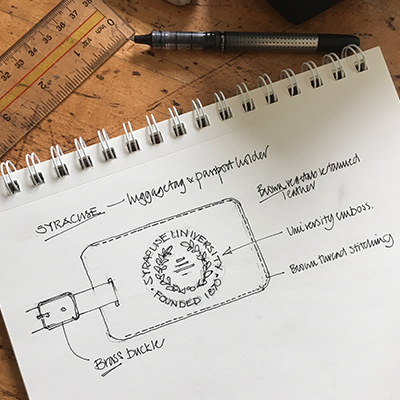 38
37
36
35
34
33
32
0
1
2
3
SYRACUSE — luggage tag & passport holder
Brown vegetable tanned
leather
University emboss.
Brown thread stitching
SYRACUSE UNIVERSITY
FOUNDED 1870
Brass buckle